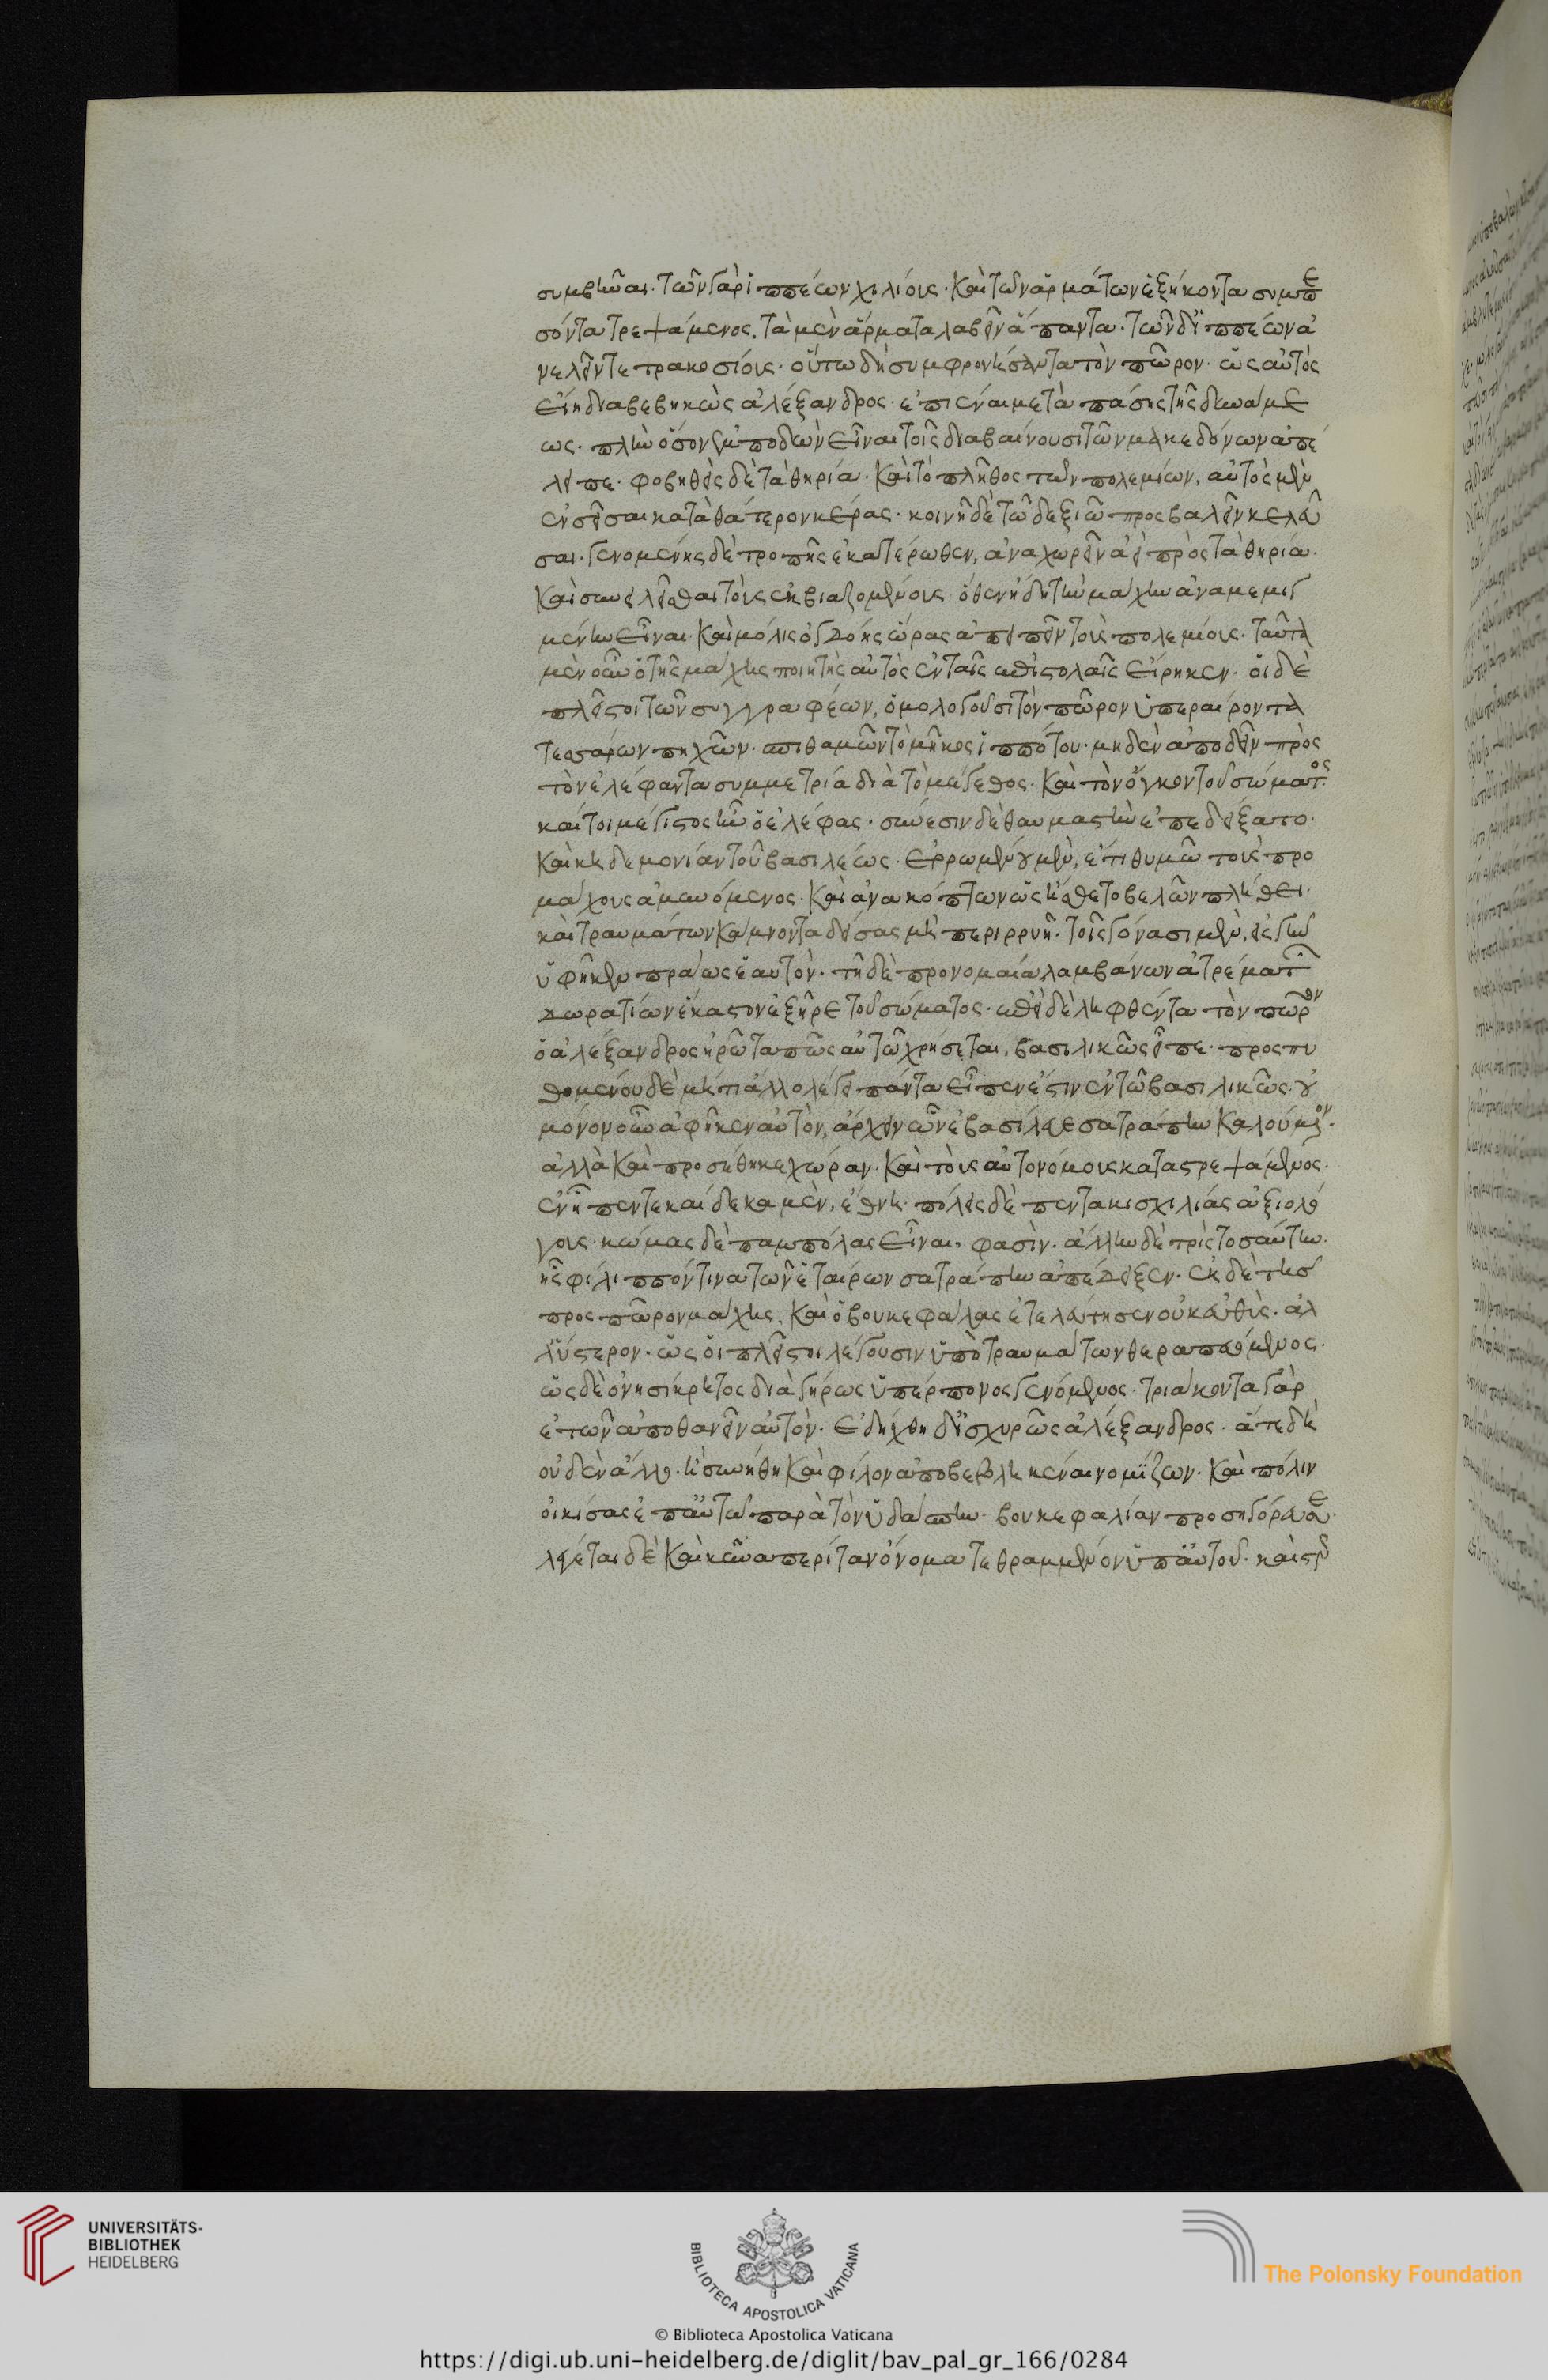 συμβῆναι. τῶν γὰρ ἱππέων χιλίους. καὶ τῶν ἁρμάτων ἑξήκοντα συμπε
σόντα τρεψάμενος. τὰ μὲν ἅρματα λαβεῖν ἅπαντα. τῶν δ' ἱππέων ἀ
νελεῖν τετρακοσίους. οὕτω δὴ συμφρονήσαντα τὸν πῶρον. ὡς αὐτὸς
εἴη διαβεβηκὼς ἀλέξανδρος. ἐπιέναι μετὰ πάσης τῆς δυνάμε
ως. πλὴν ὅσον ἐμποδὼν εἶναι τοῖς διαβαίνουσι τῶν μακεδόνων ἀπέ
λιπε. φοβηθεὶς δὲ τὰ θηρία. καὶ τὸ πλῆθος τῶν πολεμίων, αὐτὸς μὲν
ἐνσεῖσαι κατὰ θάτερον κέρας. κοινῇ δὲ τῷ δεξιῷ προσβαλεῖν κελεῦ
σαι. γενομένης δὲ τροπῆς ἑκατέρωθεν, ἀναχωρεῖν ἀεὶ πρὸς τὰ θηρία.
καὶ συνειλεῖσθαι τοὺς ἐκβιαζομένους. ὅθεν ἤδη τὴν μάχην ἀναμεμιγ
μένην εἶναι. καὶ μόλις ὀγδόης ὥρας ἀπειπεῖν τοὺς πολεμίους. ταῦτα
μὲν οὖν ὁ τῆς μάχης ποιητὴς αὐτὸς ἐν ταῖς ἐπιστολαῖς εἴρηκεν. οἱ δὲ
πλεῖστοι τῶν συγγραφέων, ὁμολογοῦσι τὸν πῶρον ὑπεραίροντα
τεσσάρων πηχῶν. σπιθαμῶν τὸ μῆκος ἱππότου. μηδὲν ἀποδεῖν πρὸς
τὸν ἐλέφαντα συμμετρία διὰ τὸ μέγεθος. καὶ τὸν ὄγκον τοῦ σώματος.
καίτοι μέγιστος ἦν ὁ ἐλέφας. σύνεσιν δὲ θαυμαστὴν ἐπεδείξατο.
καὶ κηδεμονίαν τοῦ βασιλέως. ἐρρωμένου μὲν, ἔτι θυμῷ τοὺς προ
μάχους ἀμυνόμενος. καὶ ἀνακόπτων ὡς ᾔσθετο βελῶν πλήθει.
καὶ τραυμάτων κάμνοντα δείσας μὴ περιρρυῇ. τοῖς γόνασι μὲν, εἰς γῆν
ὑφῆκεν πράως ἑαυτὸν. τῇ δὲ προνομαία λαμβάνων ἀτρέματι
δωρατίων ἕκαστον ἐξῇρε τοῦ σώματος. ἐπεὶ δὲ ληφθέντα τὸν πῶρον
ὁ ἀλέξανδρος ἠρώτα πῶς αὐτῷ χρήσεται, βασιλικῶς εἶπε. προσπυ
θομένου δὲ μή τι ἄλλο λέγει πάντα εἶπεν ἔστιν ἐν τῷ βασιλικῶς. οὐ
μόνον οὖν ἀφῆκεν αὐτὸν, ἄρχειν ὧν ἐβασίλευε σατράπην καλούμενον.
ἀλλὰ καὶ προσέθηκε χώραν. καὶ τοὺς αὐτονόμους καταστρεψάμενος.
ἐν ᾗ πεντεκαίδεκα μὲν, ἔθνη. πόλεις δὲ πεντακισχιλίας ἀξιολό
γους. κώμας δὲ παμπόλας εἶναι, φασὶν. ἄλλην δὲ τρὶς τοσαύτην.
ἧς φίλιππόν τινα τῶν ἑταίρων σατράπην ἀπέδειξεν. ἐκ δὲ τῆς
προς πῶρον μάχης. καὶ ὁ βουκεφάλας ἐτελεύτησεν οὐκ εὐθὺς. ἀλ
λ' ὕστερον. ὡς οἱ πλεῖστοι λέγουσιν ὑπὸ τραυμάτων θεραπευόμενος.
ὡς δὲ ὀνησίκρητος διὰ γήρως ὑπέρπονος γενόμενος. τριάκοντα γὰρ
ἐτῶν ἀποθανεῖν αὐτὸν. ἐδήχθη δ' ἰσχυρῶς ἀλέξανδρος. ἅτε δὴ
οὐδὲν ἄλλο. ἢ συνήθη καὶ φίλον ἀποβεβληκέναι νομίζων. καὶ πόλιν
οἰκίσας ἐπ' αὐτῷ παρὰ τὸν ὑδάσπην. βουκεφαλίαν προσηγόρευσε.
λέγεται δὲ καὶ κύνα περίταν ὄνομα τεθραμμένον ὑπ' αὐτοῦ. καὶ στερ
UNIVERSITÄTS-
BIBLIOTHEK
HEIDELBERG
BIBLIOTECA APOSTOLICA VATICANA
The Polonsky Foundation
© Biblioteca Apostolica Vaticana
https://digi.ub.uni-heidelberg.de/diglit/bav_pal_gr_166/0284